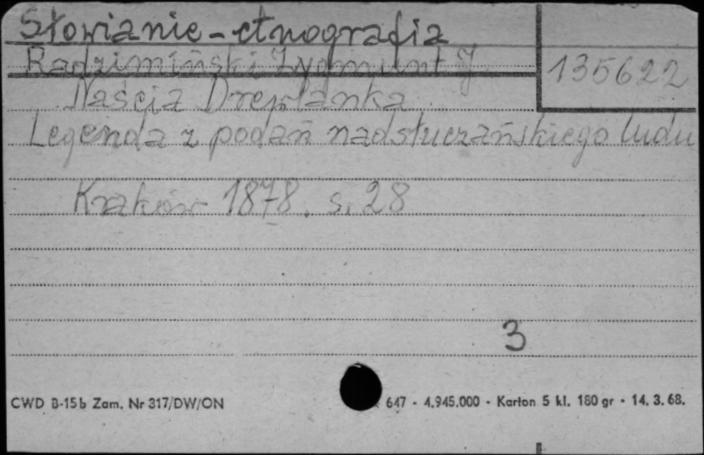 Słowianie - etnografia
Radzimiński Zygmunt J
135622
Naścia Drewlanka
Legenda z podań nadsłuczańskiego ludu
Kraków 1878. s. 28
3
CWD B-15b Zam. Nr 317/DW/ON
647 - 4.945.000 - Karton 5 kl. 180 gr - 14. 3. 68.